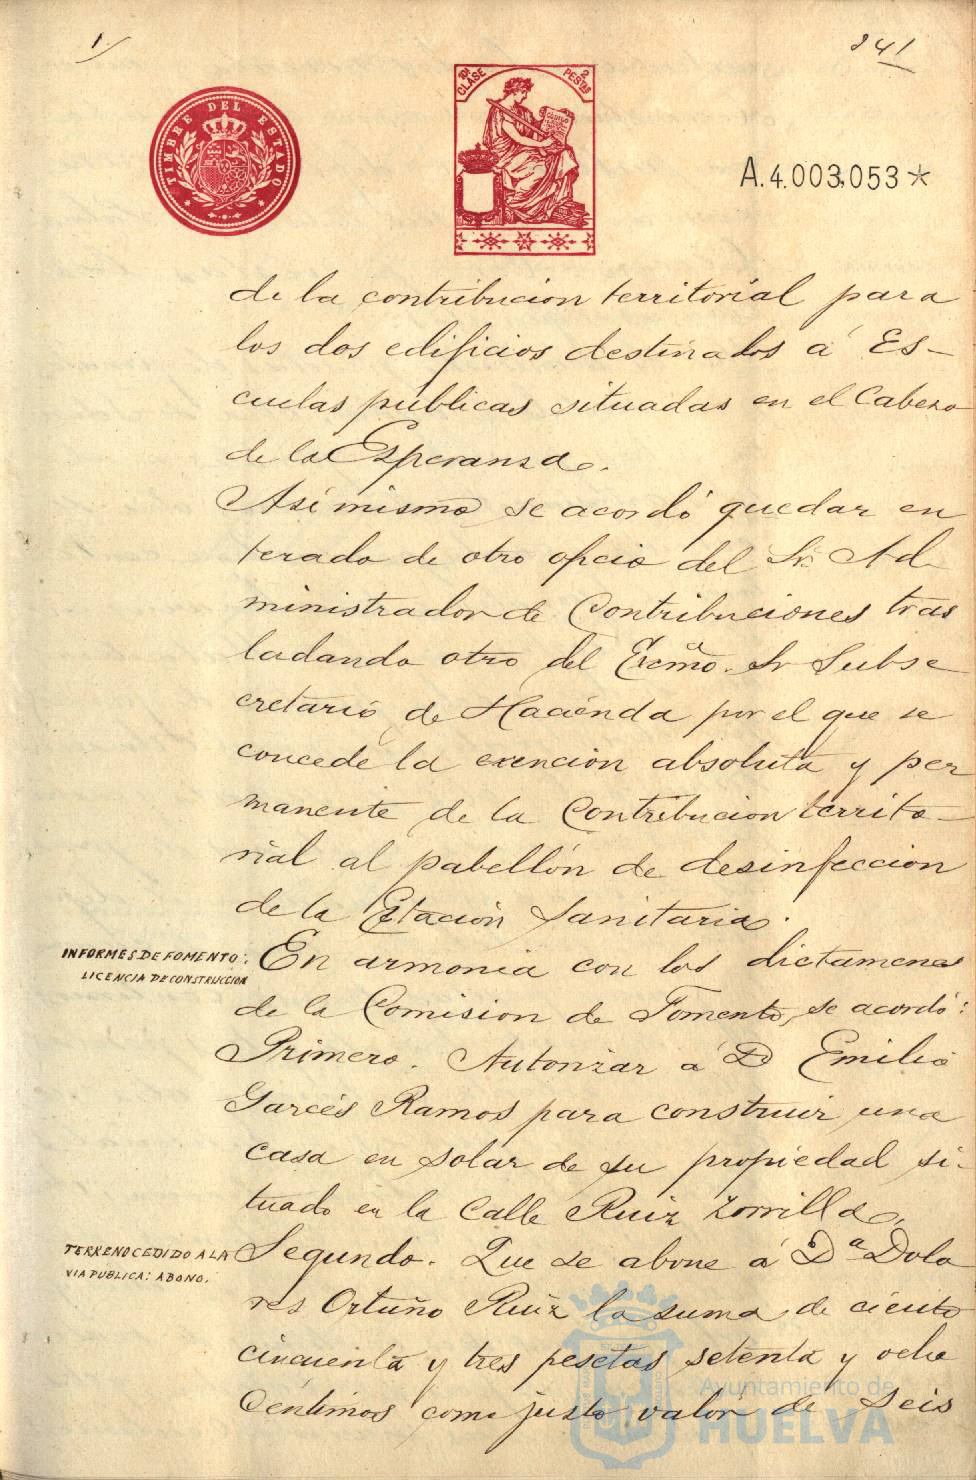 1
241
TIMBRE DEL ESTADO
10ª CLASE
2 PESTAS
A.4.003,053*
de la contribucion territorial para
los dos edificios destinados á Es-
cuelas públicas situadas en el Cabezo
de la Esperanza.
Asímismo se acordó quedar en
terado de otro oficio del Sr. Ad-
ministrador de Contribuciones tras
ladando otro del Excmo. Sr Subse
cretario de Hacienda por el que se
concede la exención absoluta y per
manente de la Contribucion territo-
rial al pabellón de desinfeccion
de la Estación Sanitaria.
INFORMES DE FOMENTO:
LICENCIA DE CONSTRUCCION
En armonia con los dictamenes
de la Comision de Fomento, se acordó:
Primero. Autorizar á D Emilio
Garcés Ramos para construir una
casa en solar de su propiedad si-
tuado en la Calle Ruiz Zorrilla.
TERRENO CEDIDO A LA
VIA PUBLICA: ABONO.
Segundo. Que se abone á Dª Dolo
res Ortuño Ruiz la suma de ciento
cincuenta y tres pesetas setenta y ocho
Céntimos como justo valor de Seis
Ayuntamiento de
HUELVA